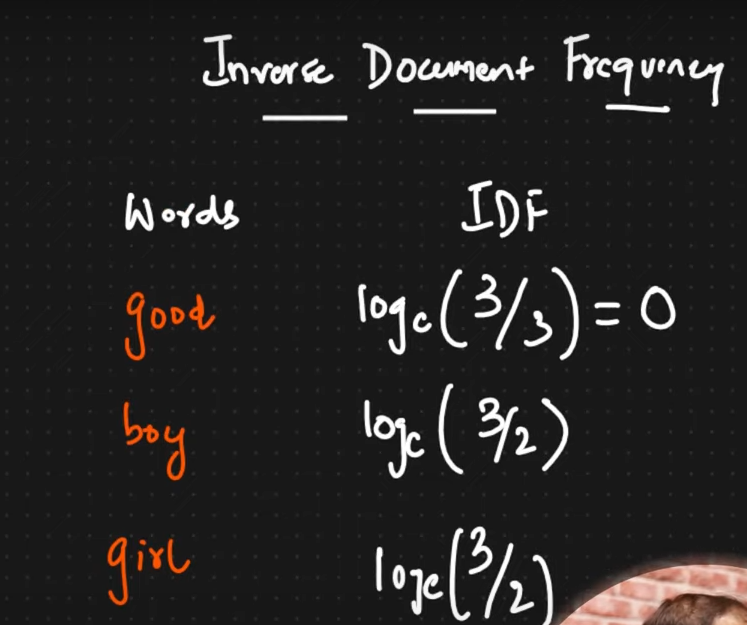 Inverse Document Frequency
Words IDF
good loge(3/3) = 0
boy loge(3/2)
girl loge(3/2)